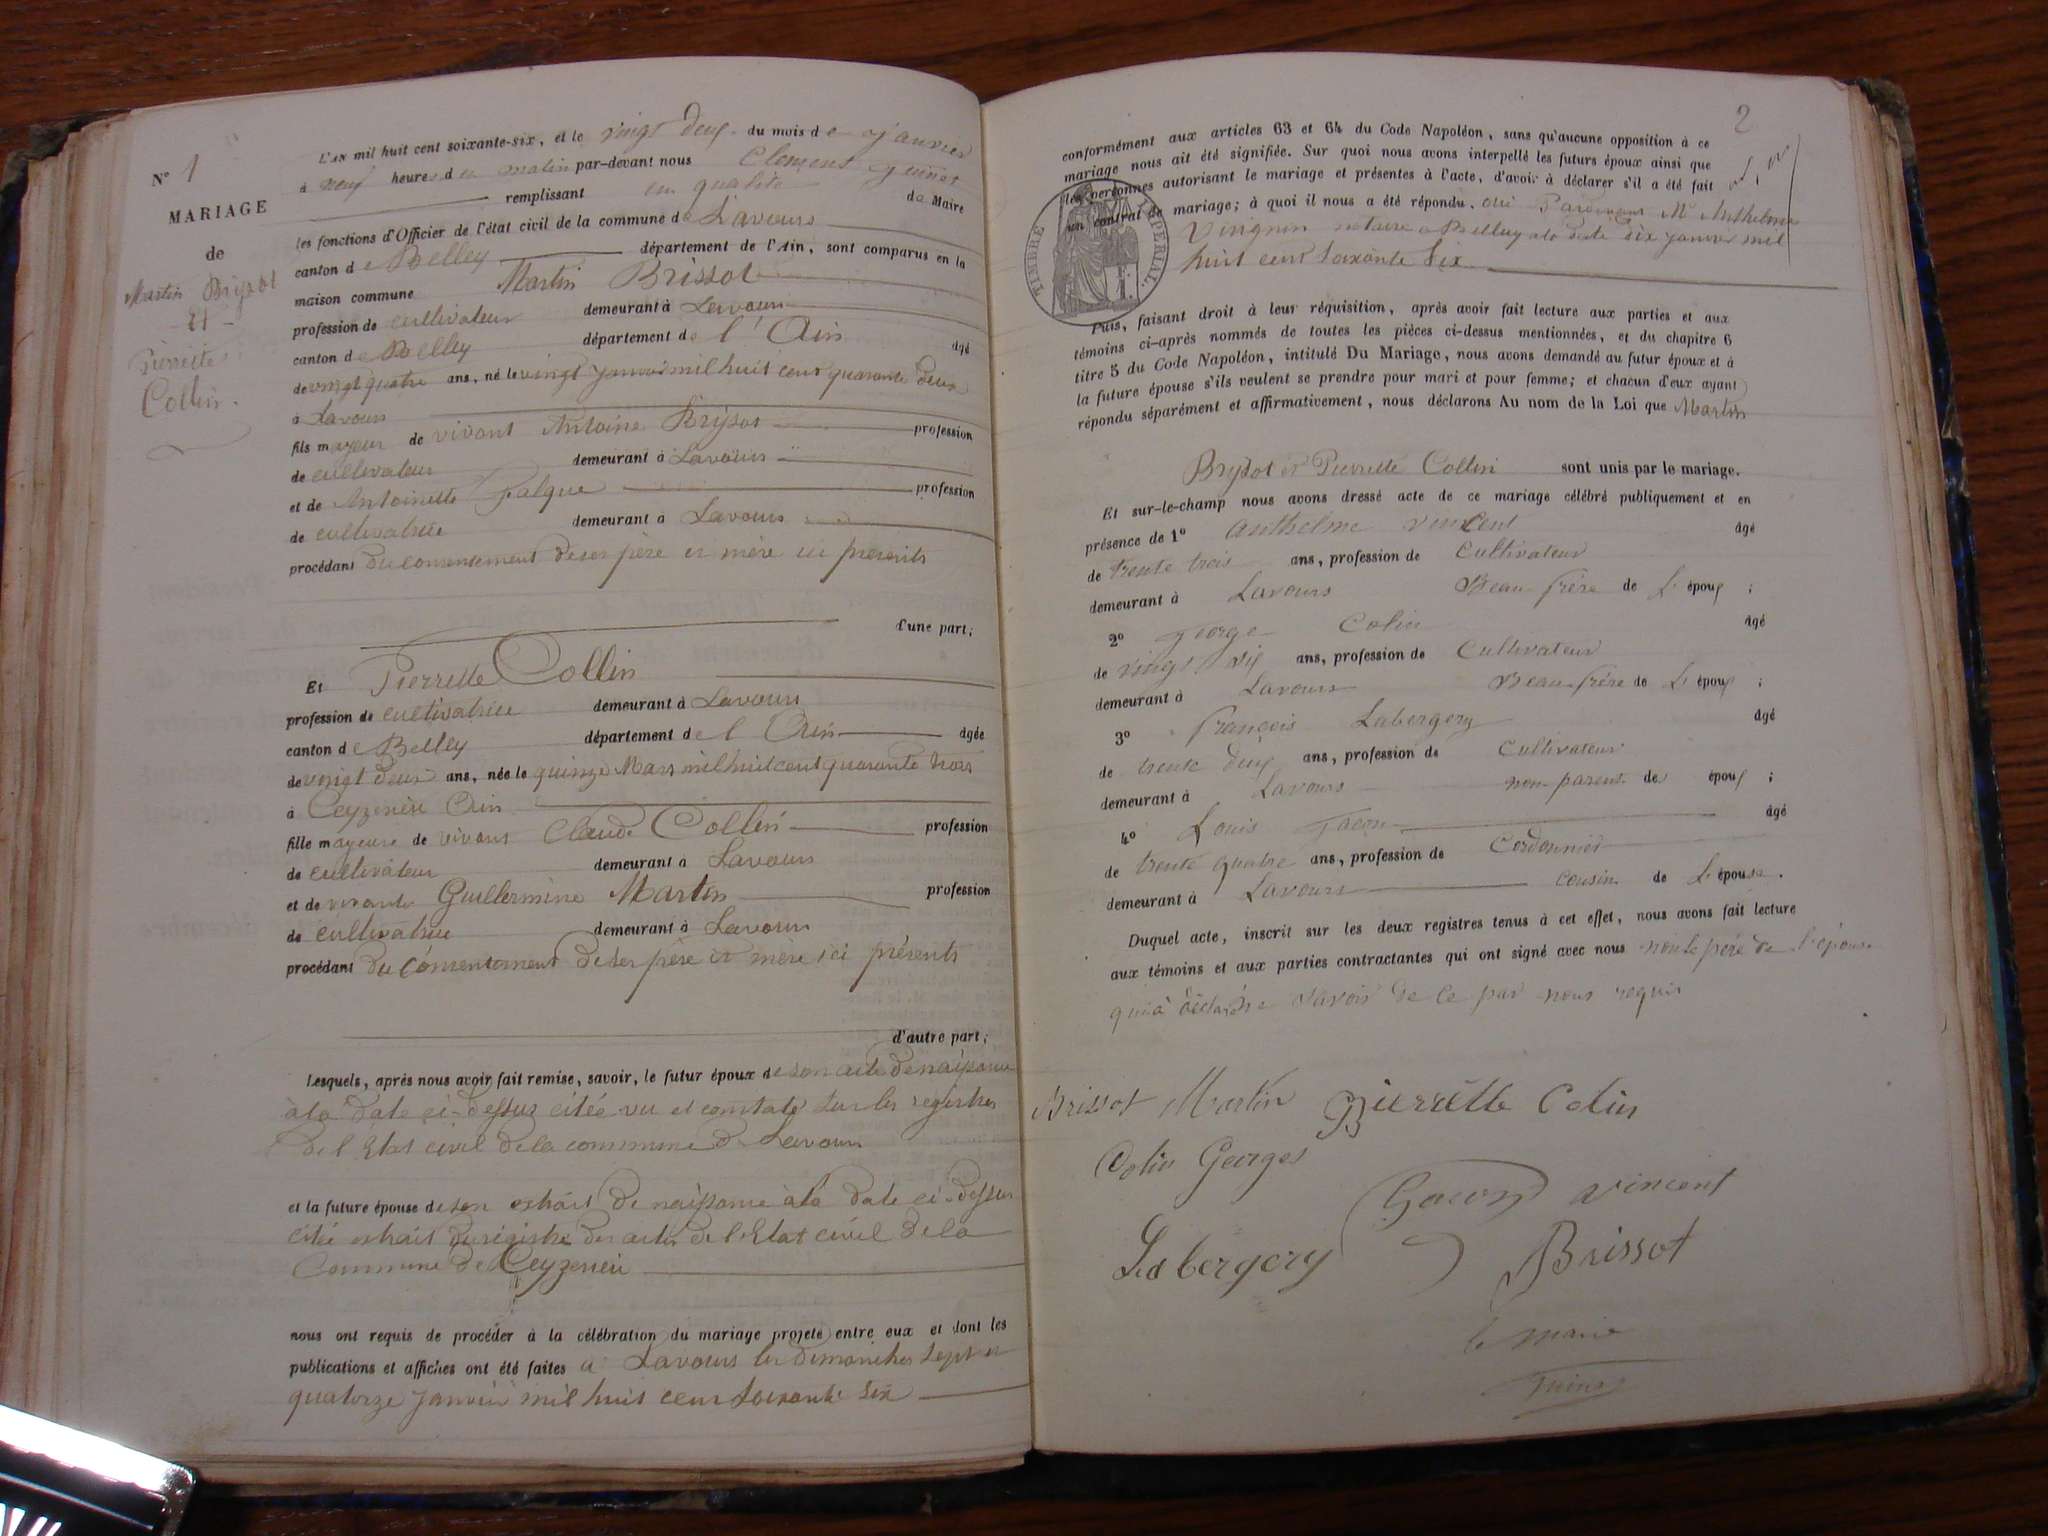 N° 1
MARIAGE
de
Martin Brissot
- Et -
Pierrette
Collin.
L'AN mil huit cent soixante-six, et le vingt deux du mois de janvier
à neuf heures du matin par-devant nous Clément Guinet
remplissant en qualité de Maire
les fonctions d'Officier de l'état civil de la commune de Lavours
canton de Belley département de l'Ain, sont comparus en la
maison commune Martin Brissot
profession de cultivateur demeurant à Lavours
canton de Belley département de l'Ain âgé
de vingt quatre ans, né le vingt janvier mil huit cent quarante deux
à Lavours
fils mayeur de vivant Antoine Brissot profession
de cultivateur demeurant à Lavours
et de Antoinette Falque profession
de cultivatrice demeurant à Lavours
procédant du consentement de ses père et mère ici présents
d'une part;
Et Pierrette Collin
profession de cultivatrice demeurant à Lavours
canton de Belley département de l'Ain âgée
de vingt deux ans, née le quinze Mars mil huit cent quarante trois
à Ceyzerieu Ain
fille mayeure de vivant Claude Collin profession
de cultivateur demeurant à Lavours
et de vivante Guillermine Martin profession
de cultivatrice demeurant à Lavours
procédant du consentement de ses père et mère ici présents
d'autre part;
Lesquels, après nous avoir fait remise, savoir, le futur époux de son acte de naissance
à la date ci-dessus citée vu et constaté sur les registres
de l'Etat civil de la commune de Lavours
et la future épouse de son extrait de naissance à la date ci-dessus
citée extrait du régistre des actes de l'Etat civil de la
Commune de Ceyzerieu
nous ont requis de procéder à la célébration du mariage projeté entre eux et dont les
publications et affiches ont été faites à Lavours les dimanches sept et
quatorze janvier mil huit cent soixante six
2
conformément aux articles 63 et 64 du Code Napoléon, sans qu'aucune opposition à ce
mariage nous ait été signifiée. Sur quoi nous avons interpellé les futurs époux ainsi que
les personnes autorisant le mariage et présentes à l'acte, d'avoir à déclarer s'il a été fait
un contrat de mariage; à quoi il nous a été répondu. oui Pardevant Mr Anthelme
notaire à Belley à la date six janvier mil
huit cent soixante six
TIMBRE IMPÉRIAL.
Puis, faisant droit à leur réquisition, après avoir fait lecture aux parties et aux
témoins ci-après nommés de toutes les pièces ci-dessus mentionnées, et du chapitre 6
titre 5 du Code Napoléon, intitulé Du Mariage, nous avons demandé au futur époux et à
la future épouse s'ils veulent se prendre pour mari et pour femme; et chacun d'eux ayant
répondu séparément et affirmativement, nous déclarons Au nom de la Loi que Martin
Brissot et Pierrette Collin sont unis par le mariage.
Et sur-le-champ nous avons dressé acte de ce mariage célébré publiquement et en
présence de 1° Anthelme Vincent âgé
de trente trois ans, profession de Cultivateur
demeurant à Lavours Beau-frère de L'époux ;
2° George Colin âgé
de vingt six ans, profession de Cultivateur
demeurant à Lavours Beau-frère de L'époux ;
3° François Labergery âgé
de trente deux ans, profession de Cultivateur
demeurant à Lavours non parent de époux ;
4° Louis Gacon âgé
de trente quatre ans, profession de Cordonnier
demeurant à Lavours cousin de L'épouse.
Duquel acte, inscrit sur les deux registres tenus à cet effet, nous avons fait lecture
aux témoins et aux parties contractantes qui ont signé avec nous non le père de l'épouse
qui à déclaré ne savoir de ce par nous requis
Brissot Martin Pierrette Colin
Colin Georges
Gacon Vincent
Labergery Brissot
le maire
Guinet